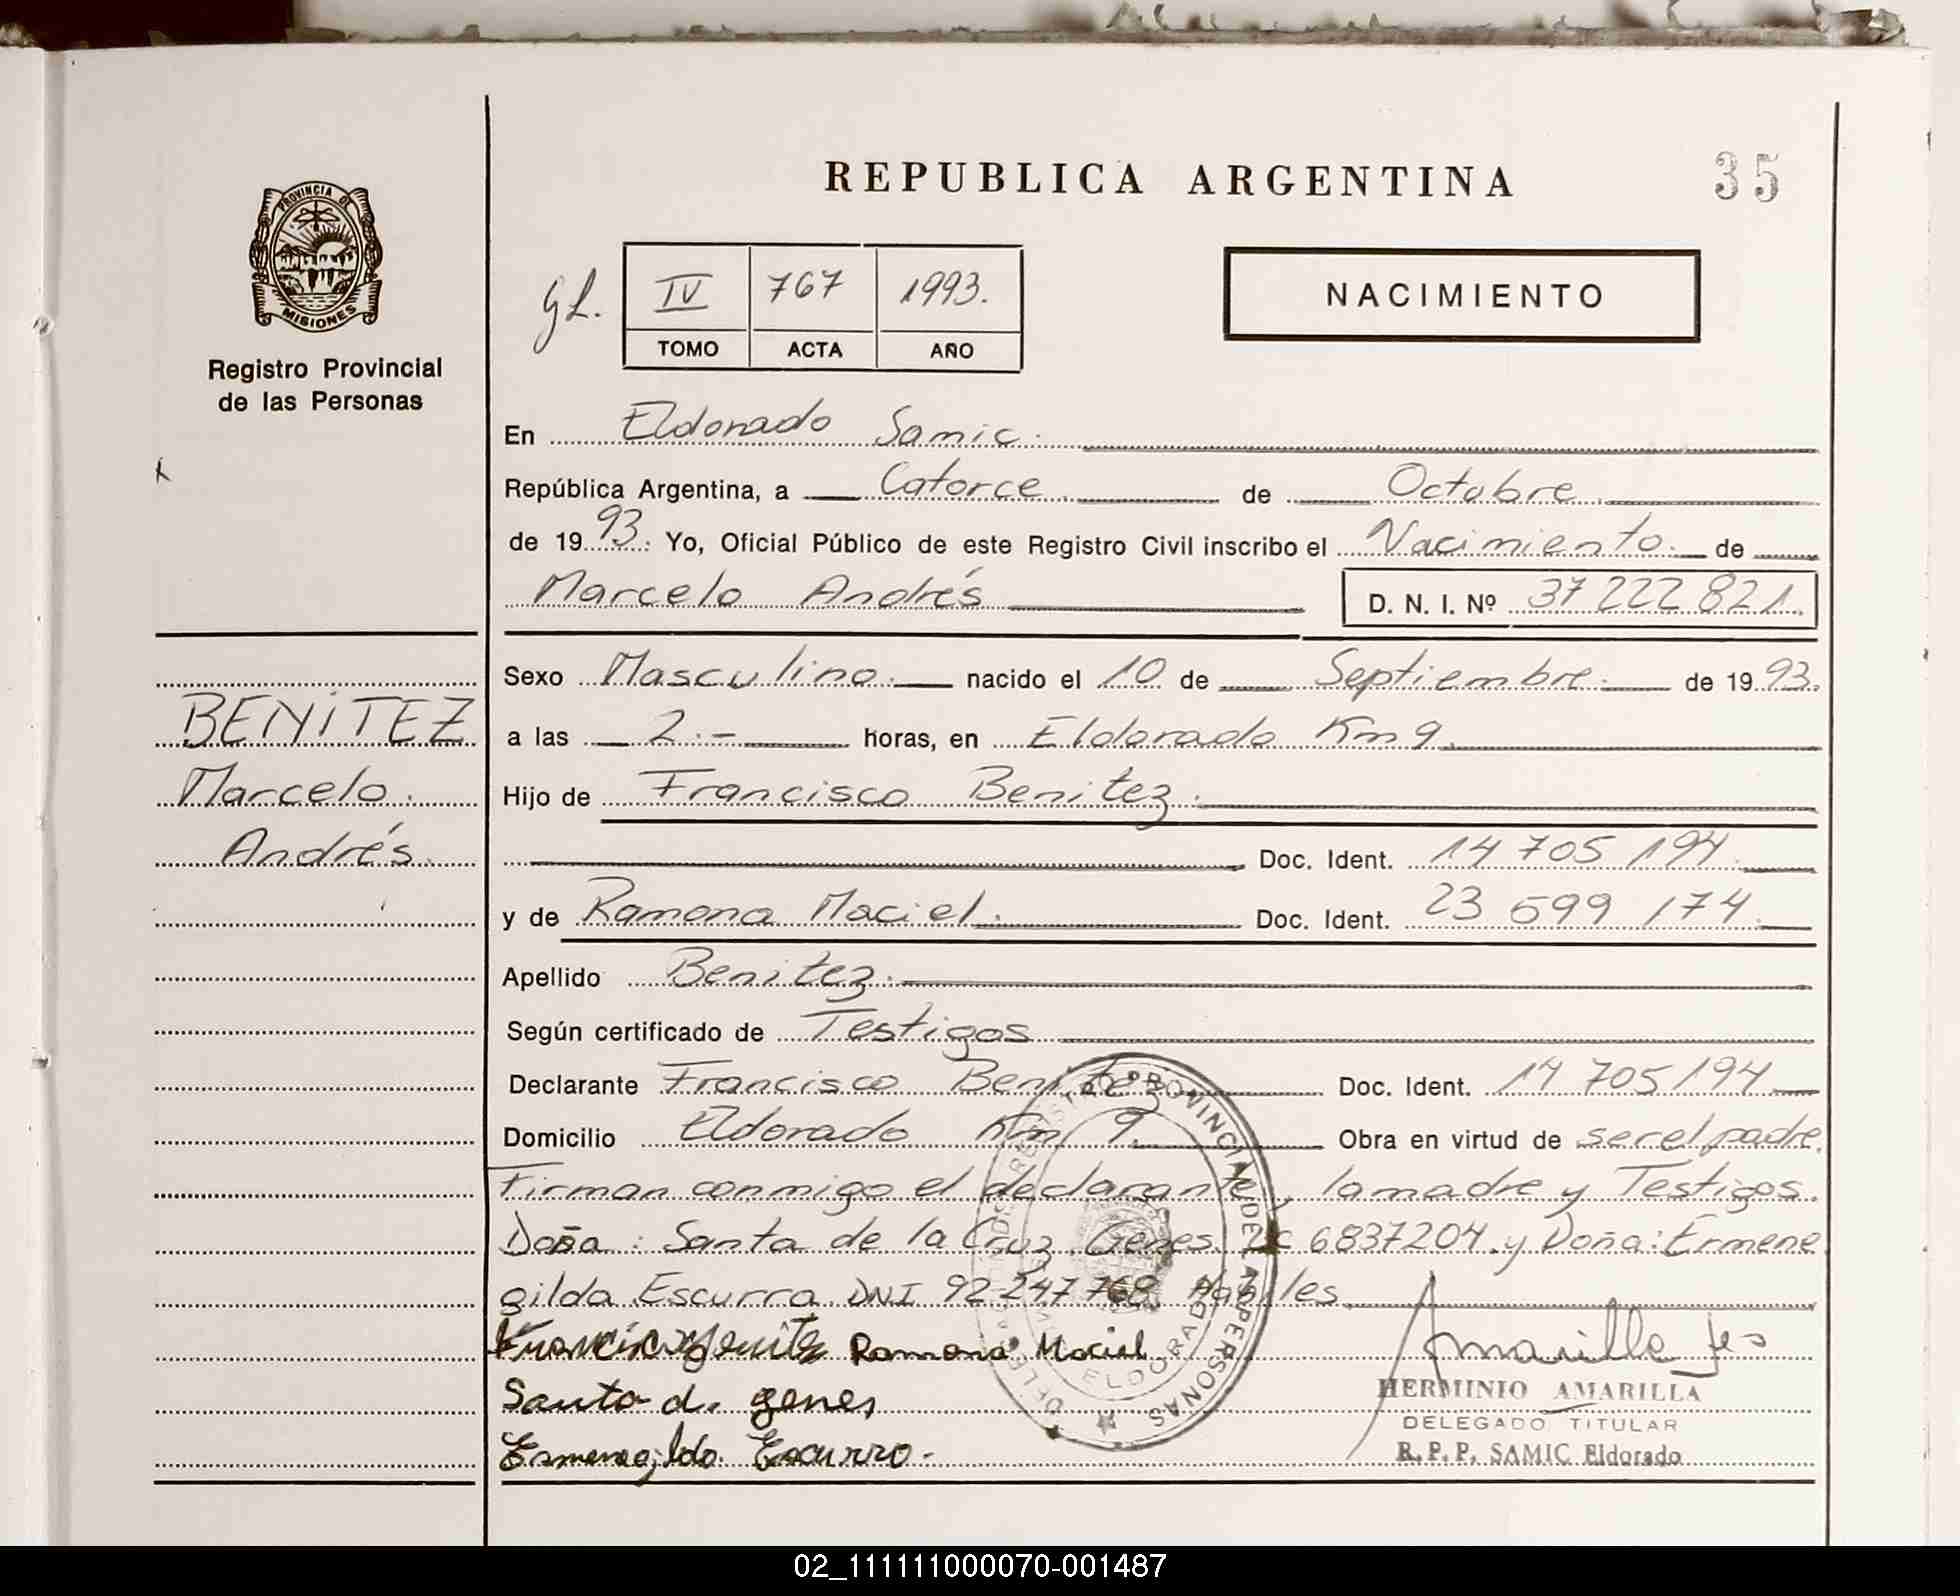 REPUBLICA ARGENTINA
35
PROVINCIA DE MISIONES
Registro Provincial
de las Personas
gL.
IV 767 1993.
TOMO ACTA AÑO
NACIMIENTO
En Eldorado Samic.
República Argentina, a Catorce de Octubre
de 1993. Yo, Oficial Público de este Registro Civil inscribo el Nacimiento. de
Marcelo Andrés D. N. I. Nº 37 222 821.
BENITEZ
Marcelo.
Andrés.
Sexo Masculino. nacido el 10 de Septiembre. de 1993.
a las 2.- horas, en Eldorado Km 9.
Hijo de Francisco Benitez.
Doc. Ident. 14 705 194.
y de Ramona Maciel. Doc. Ident. 23 599 174.
Apellido Benitez.
Según certificado de Testigos
Declarante Francisco Benitez Doc. Ident. 14 705 194
Domicilio Eldorado Km 9. Obra en virtud de ser el padre.
Firman conmigo el declarante, la madre y Testigos.
Doña: Santa de la Cruz Genes. LC 6837204. y Doña: Ermene
gilda Escurra DNI 92 247 768. Hábiles.
Francisco Benitez Ramona Maciel
Santa d. genes
Ermenegilda Escurra.
REGISTRO PROVINCIAL DE LAS PERSONAS
ELDORADO
Amarilla
HERMINIO AMARILLA
DELEGADO TITULAR
R. P. P. SAMIC Eldorado
02_111111000070-001487